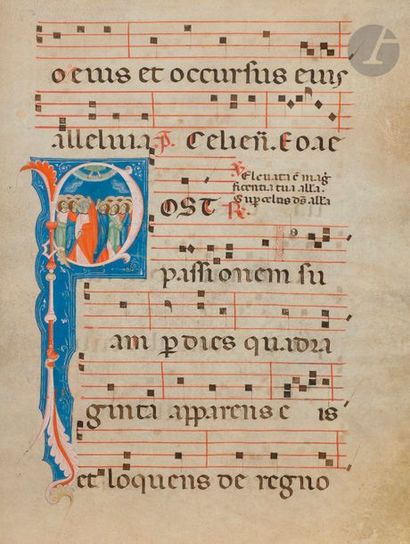 o eius et occursus eius
alleluia. P. Celi en. Eo ae
V Elevata ē mag
ficentia tua alla.
Sup celos ds̄ alla
POST R.
passionem su
am p dies quadra
ginta apparens e is
et loquens de regno